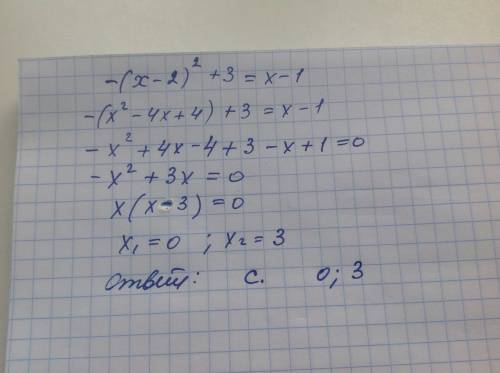 -(x-2)² + 3 = x-1
-(x² - 4x + 4) + 3 = x - 1
- x² + 4x - 4 + 3 - x + 1 = 0
- x² + 3x = 0
x(x-3) = 0
x₁ = 0 ; x₂ = 3
Ответ: с. 0; 3